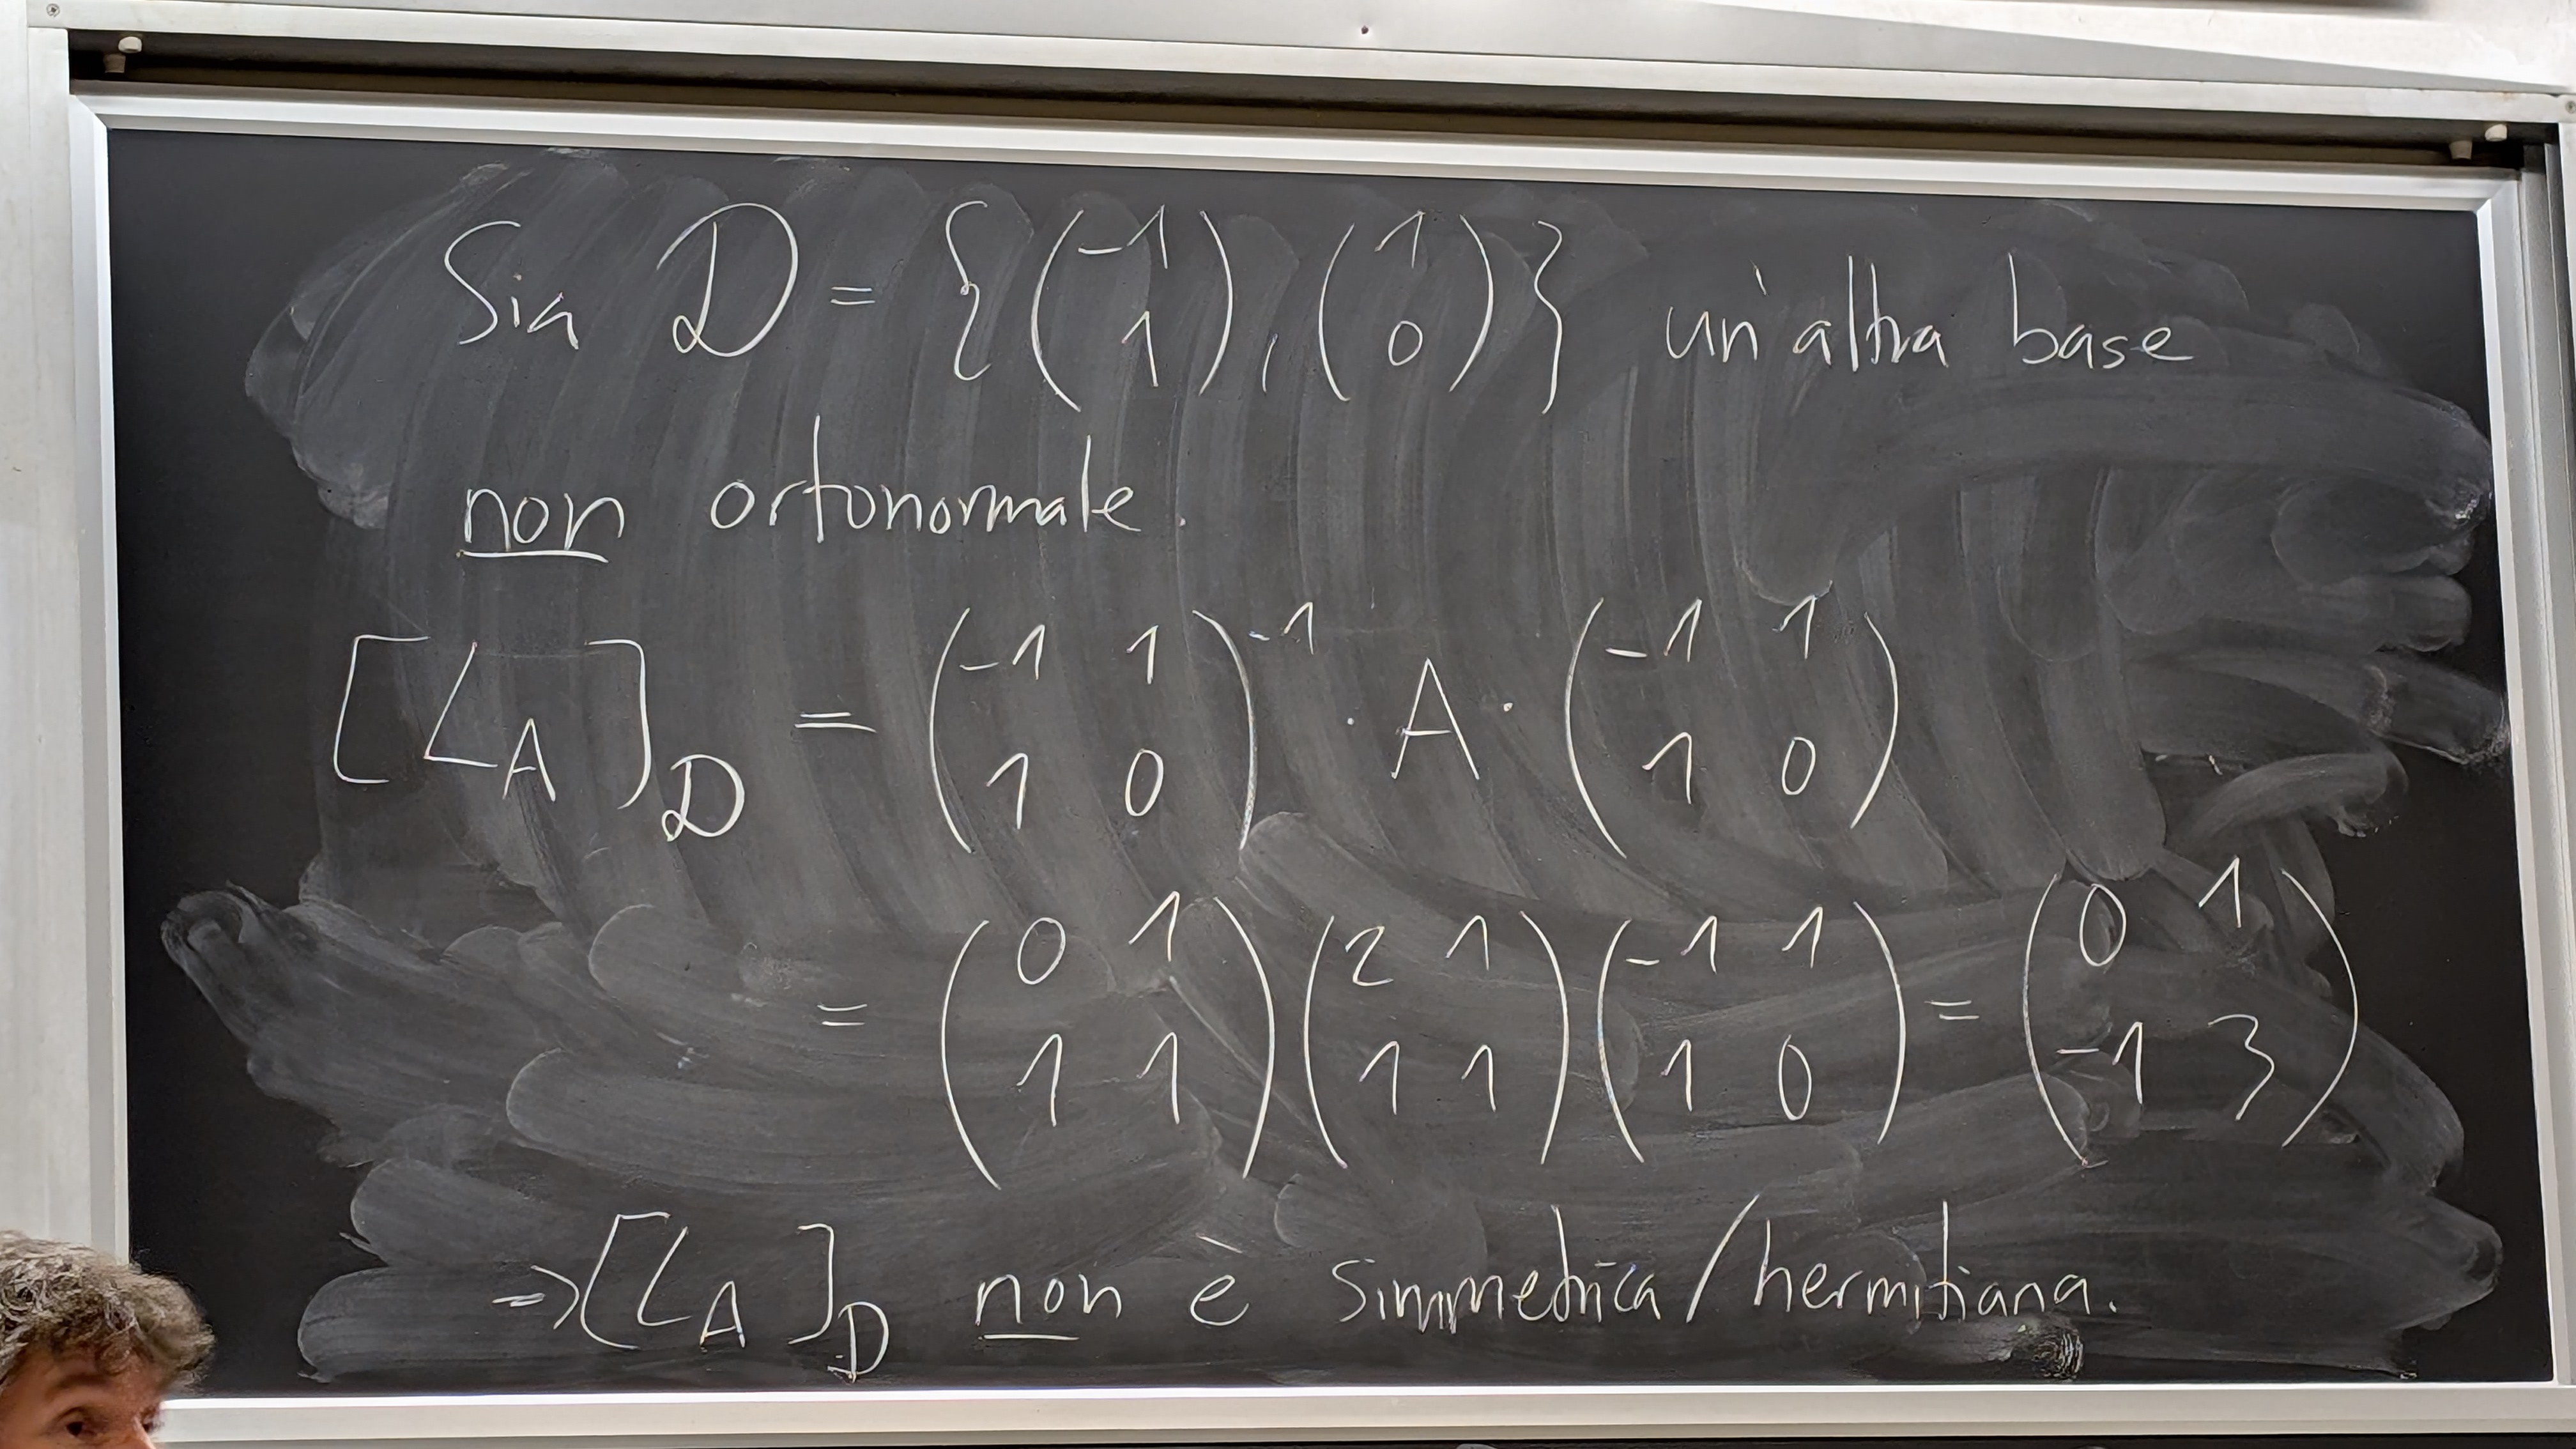 Sia D = {(-1 1), (1 0)} un'altra base
non ortonormale.
[L_A]_D = (-1 1 1 0)^-1 · A · (-1 1 1 0)
= (0 1 1 1)(2 1 1 1)(-1 1 1 0) = (0 1 -1 3)
⇒ [L_A]_D non è simmetrica/hermitiana.